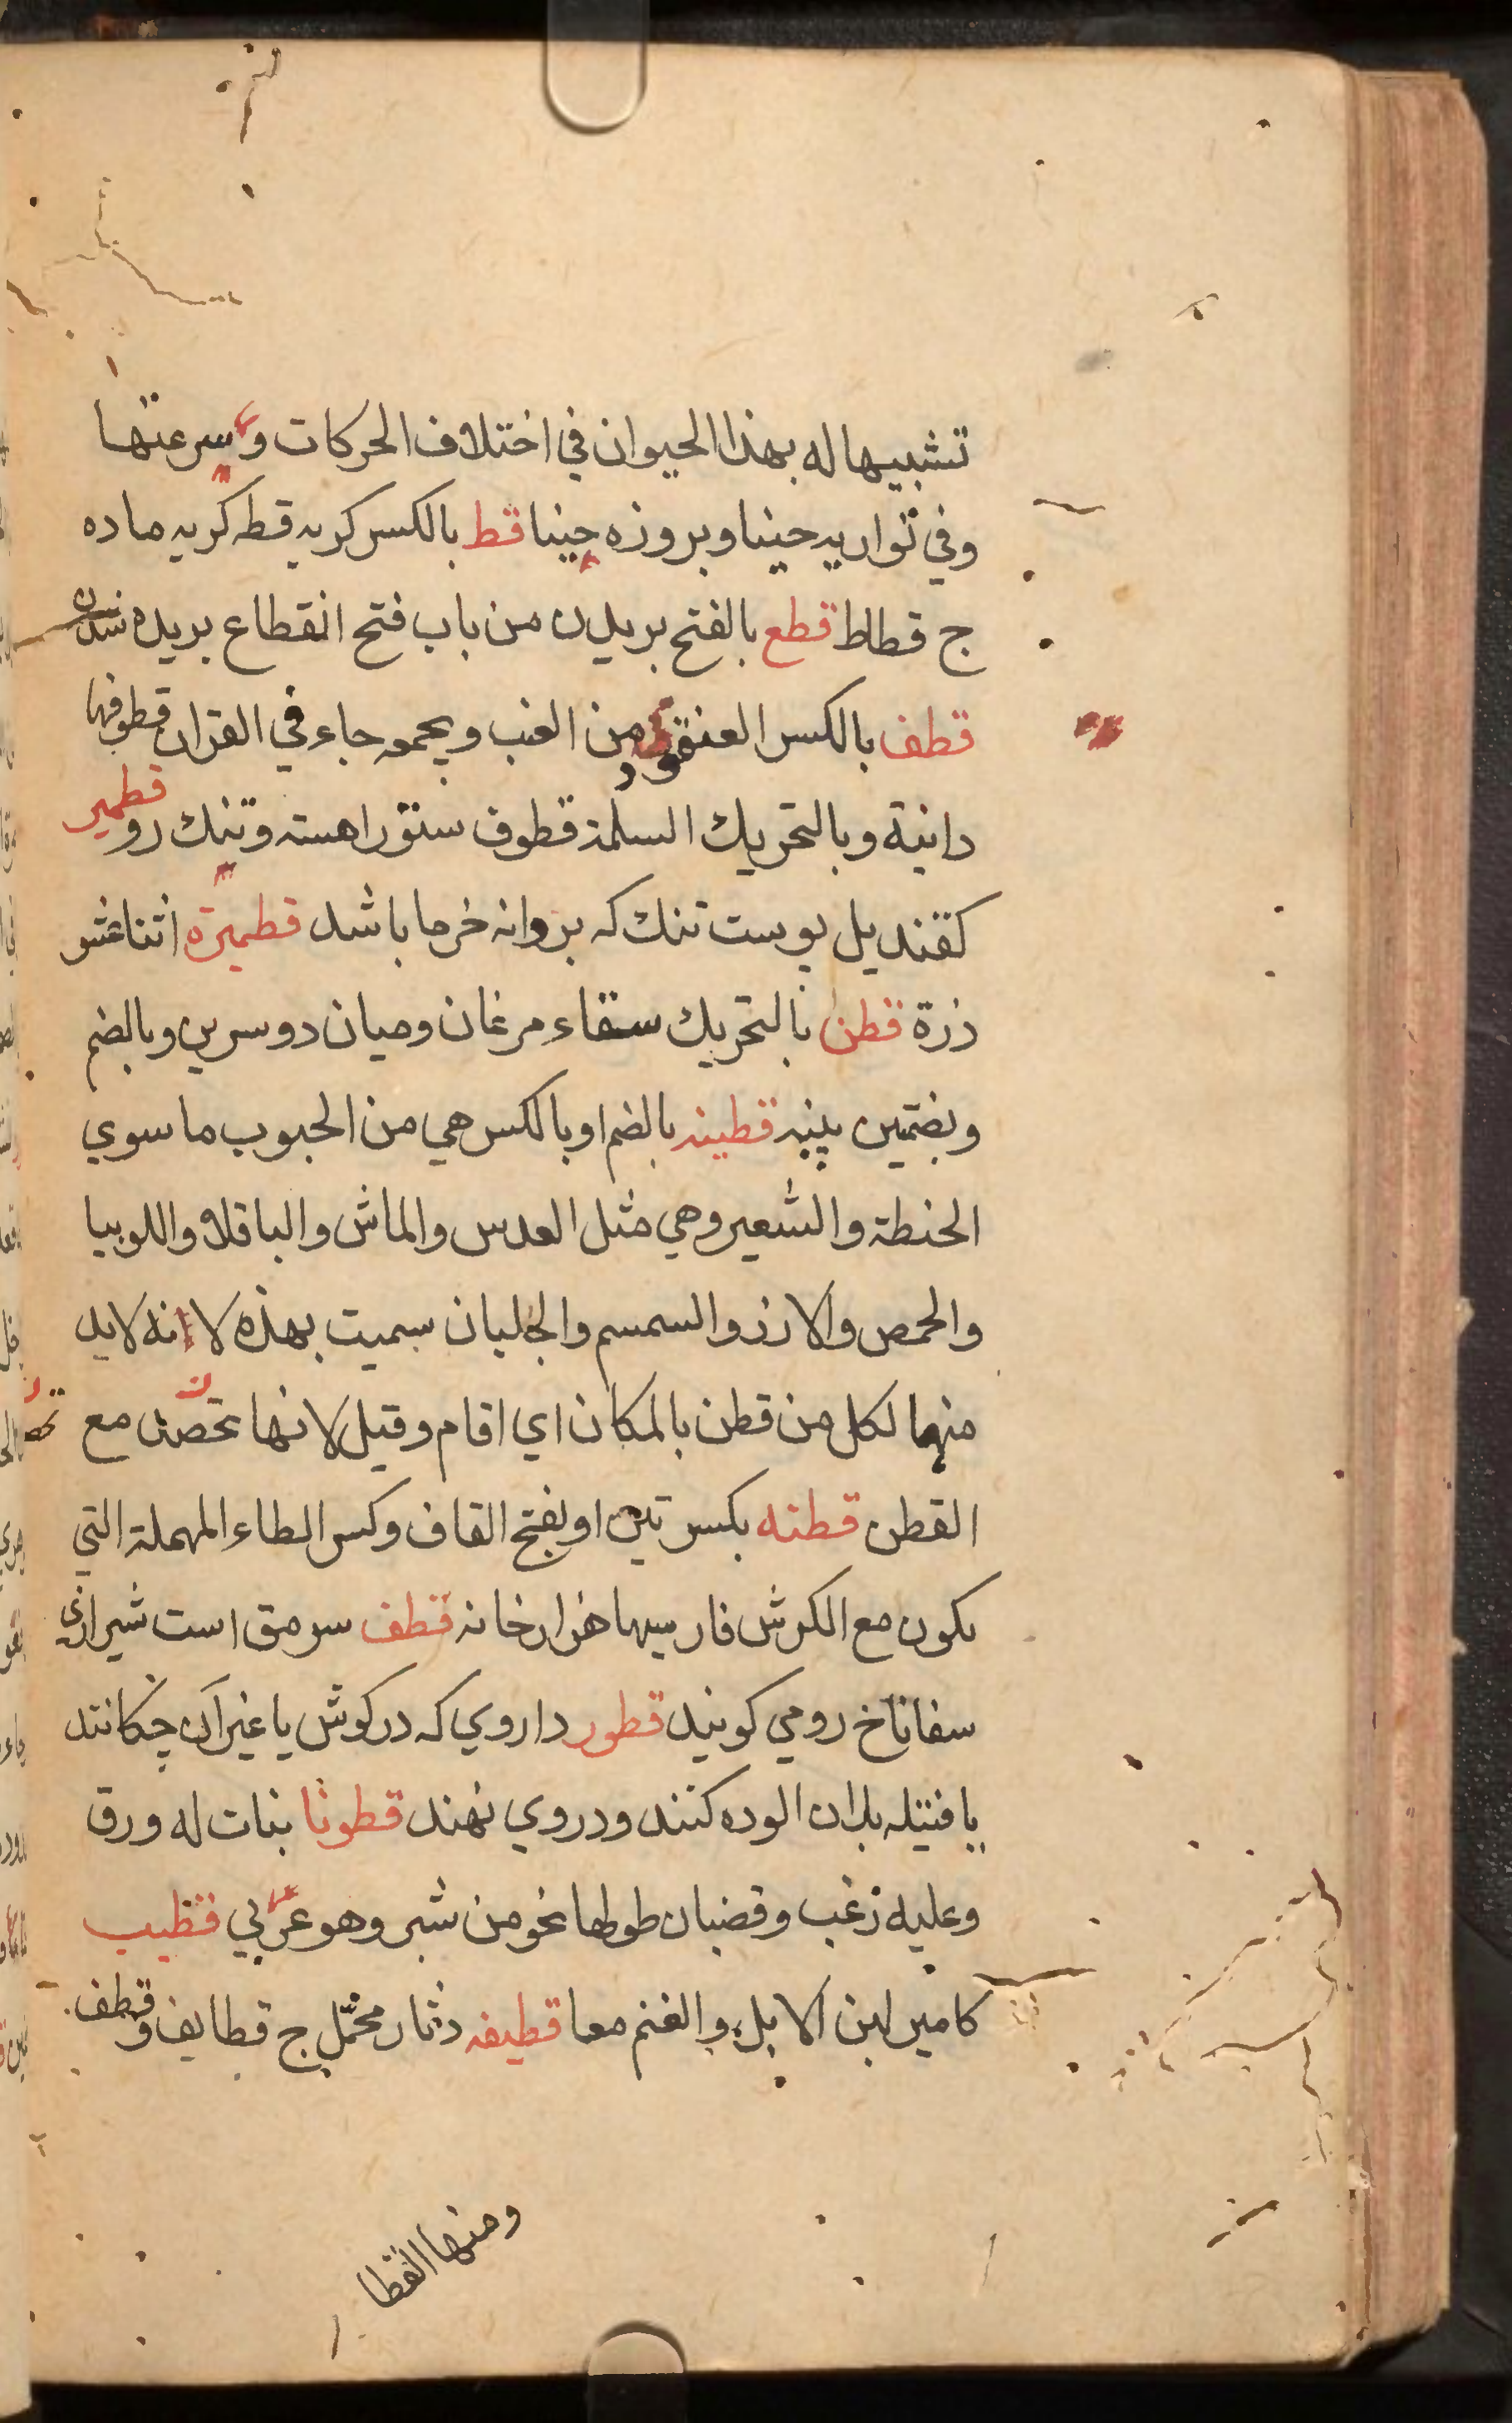 تشبيها له بهذا الحيوان في اختلاف الحركات وسرعتها
وفي تواريه حينا وبروزه حينا قط بالكسر كربه قطه كربه ماده
ج قطاط قطع بالفتح بريدن من باب فتح انقطاع بريده شدن
قطف بالكسر العنقود من العنب وبجمعه جاء في القران قطوفها
دانية وبالتحريك السلمة قطوف ستور اهسته وتنك رو قطمير
كقنديل پوست تنك كه بر دانه خرما باشد قطميرة اثنا عشر
ذرة قطن بالتحريك سقاء مرغان وميان دو سرين وبالضم
وبضمتين پنبه قطينه بالضم او بالكسر هي من الحبوب ما سوي
الحنطة والشعير وهي مثل العدس والماش والباقلا واللوبيا
والحمص والارز والسمسم والجلبان سميت بهذه لانه لابد
منهما لكل من قطن بالمكان اي اقام وقيل لانها تحصد مع
القطن قطنه بكسرتين او بفتح القاف وكسر الطاء المهملة التي
يكون مع الكرش فارسيها هزارخانه قطف سرمق است شيرازي
سفاناخ رومي كويند قطور داروي كه در كوش يا غير آن چكانند
يا فتيله بدان الوده كنند ودر وي نهند قطونا نبات له ورق
وعليه زغب وقضبان طولها نحو من شبر وهو عربي قظيب
كامير لبن الابل والغنم معا قطيفه دثار مخمل ج قطايف وقطف
ومنها القطا